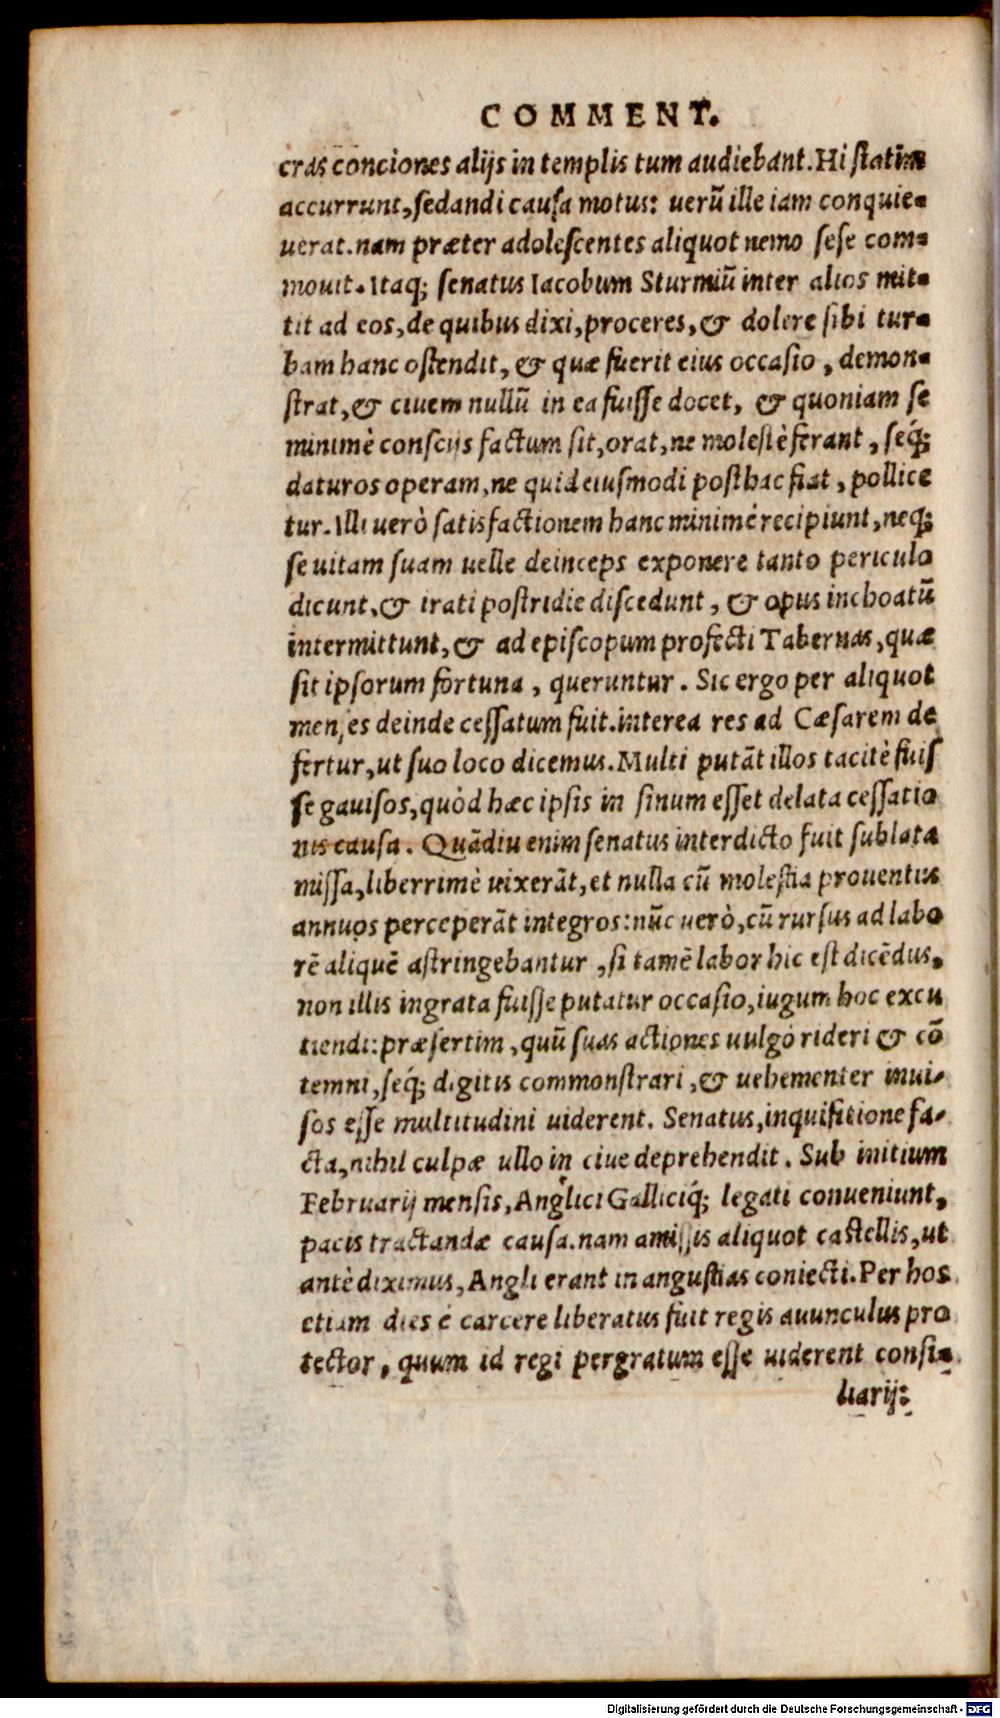 COMMENT.
cras conciones alijs in templis tum audiebant. Hi statim
accurrunt, sedandi causa motus: uerũ ille iam conquie-
uerat. nam præter adolescentes aliquot nemo sese com-
mouit. Itaq; senatus Iacobum Sturmiũ inter alios mit-
tit ad eos, de quibus dixi, proceres, & dolere sibi tur-
bam hanc ostendit, & quæ fuerit eius occasio, demon-
strat, & ciuem nullũ in ea fuisse docet, & quoniam se
minimè conscijs factum sit, orat, ne molestè ferant, seq́;
daturos operam, ne quid eiusmodi posthac fiat, pollice
tur. Illi uerò satisfactionem hanc minimè recipiunt, neq;
se uitam suam uelle deinceps exponere tanto periculo
dicunt, & irati postridie discedunt, & opus inchoatũ
intermittunt, & ad episcopum profecti Tabernas, quæ
sit ipsorum fortuna, queruntur. Sic ergo per aliquot
menses deinde cessatum fuit. interea res ad Cæsarem de
fertur, ut suo loco dicemus. Multi putãt illos tacitè fuis
se gauisos, quòd hæc ipsis in sinum esset delata cessatio
nis causa. Quãdiu enim senatus interdicto fuit sublata
missa, liberrimè uixerãt, et nulla cũ molestia prouentus
annuos perceperãt integros: nũc uerò, cũ rursus ad labo
rẽ aliquẽ astringebantur, si tamẽ labor hic est dicẽdus,
non illis ingrata fuisse putatur occasio, iugum hoc excu
tiendi: præsertim, quũ suas actiones uulgò rideri & cõ
temni, seq́; digitis commonstrari, & uehementer inui-
sos esse multitudini uiderent. Senatus, inquisitione fa-
cta, nihil culpæ ullo in ciue deprehendit. Sub initium
Februarij mensis, Anglici Galliciq́; legati conueniunt,
pacis tractandæ causa. nam amissis aliquot castellis, ut
antè diximus, Angli erant in angustias coniecti. Per hos
etiam dies è carcere liberatus fuit regis auunculus pro
tector, quum id regi pergratum esse uiderent consi-
liarij:
Digitalisierung gefördert durch die Deutsche Forschungsgemeinschaft - DFG